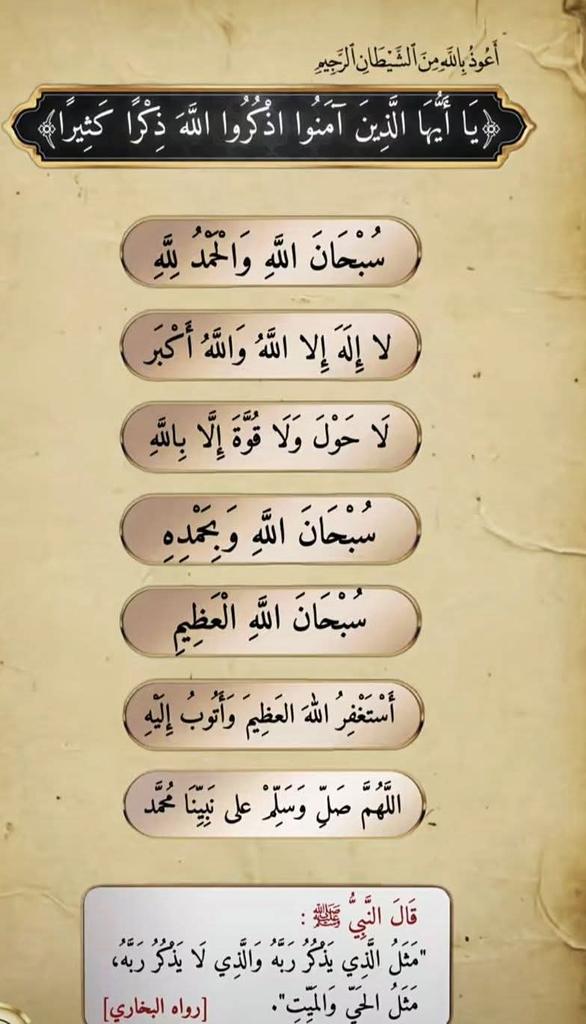 أَعُوذُ بِاللَّهِ مِنَ الشَّيْطَانِ الرَّجِيمِ
﴿يَا أَيُّهَا الَّذِينَ آمَنُوا اذْكُرُوا اللَّهَ ذِكْرًا كَثِيرًا﴾
سُبْحَانَ اللَّهِ وَالْحَمْدُ لِلَّهِ
لا إِلَهَ إِلا اللَّهُ وَاللَّهُ أَكْبَر
لَا حَوْلَ وَلَا قُوَّةَ إِلَّا بِاللَّهِ
سُبْحَانَ اللَّهِ وَبِحَمْدِهِ
سُبْحَانَ اللَّهِ الْعَظِيمِ
أَسْتَغْفِرُ اللهَ العَظِيمَ وَأَتُوبُ إِلَيْهِ
اللَّهُمَّ صَلِّ وَسَلِّمْ على نَبِيِّنَا مُحَمَّد
قَالَ النَّبِيُّ ﷺ :
"مَثَلُ الَّذِي يَذْكُرُ رَبَّهُ وَالَّذِي لَا يَذْكُرُ رَبَّهُ،
مَثَلُ الحَيِّ وَالمَيِّتِ". [رواه البخاري]